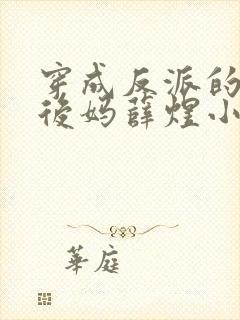 穿成反派的
後妈薛煌小
華庭